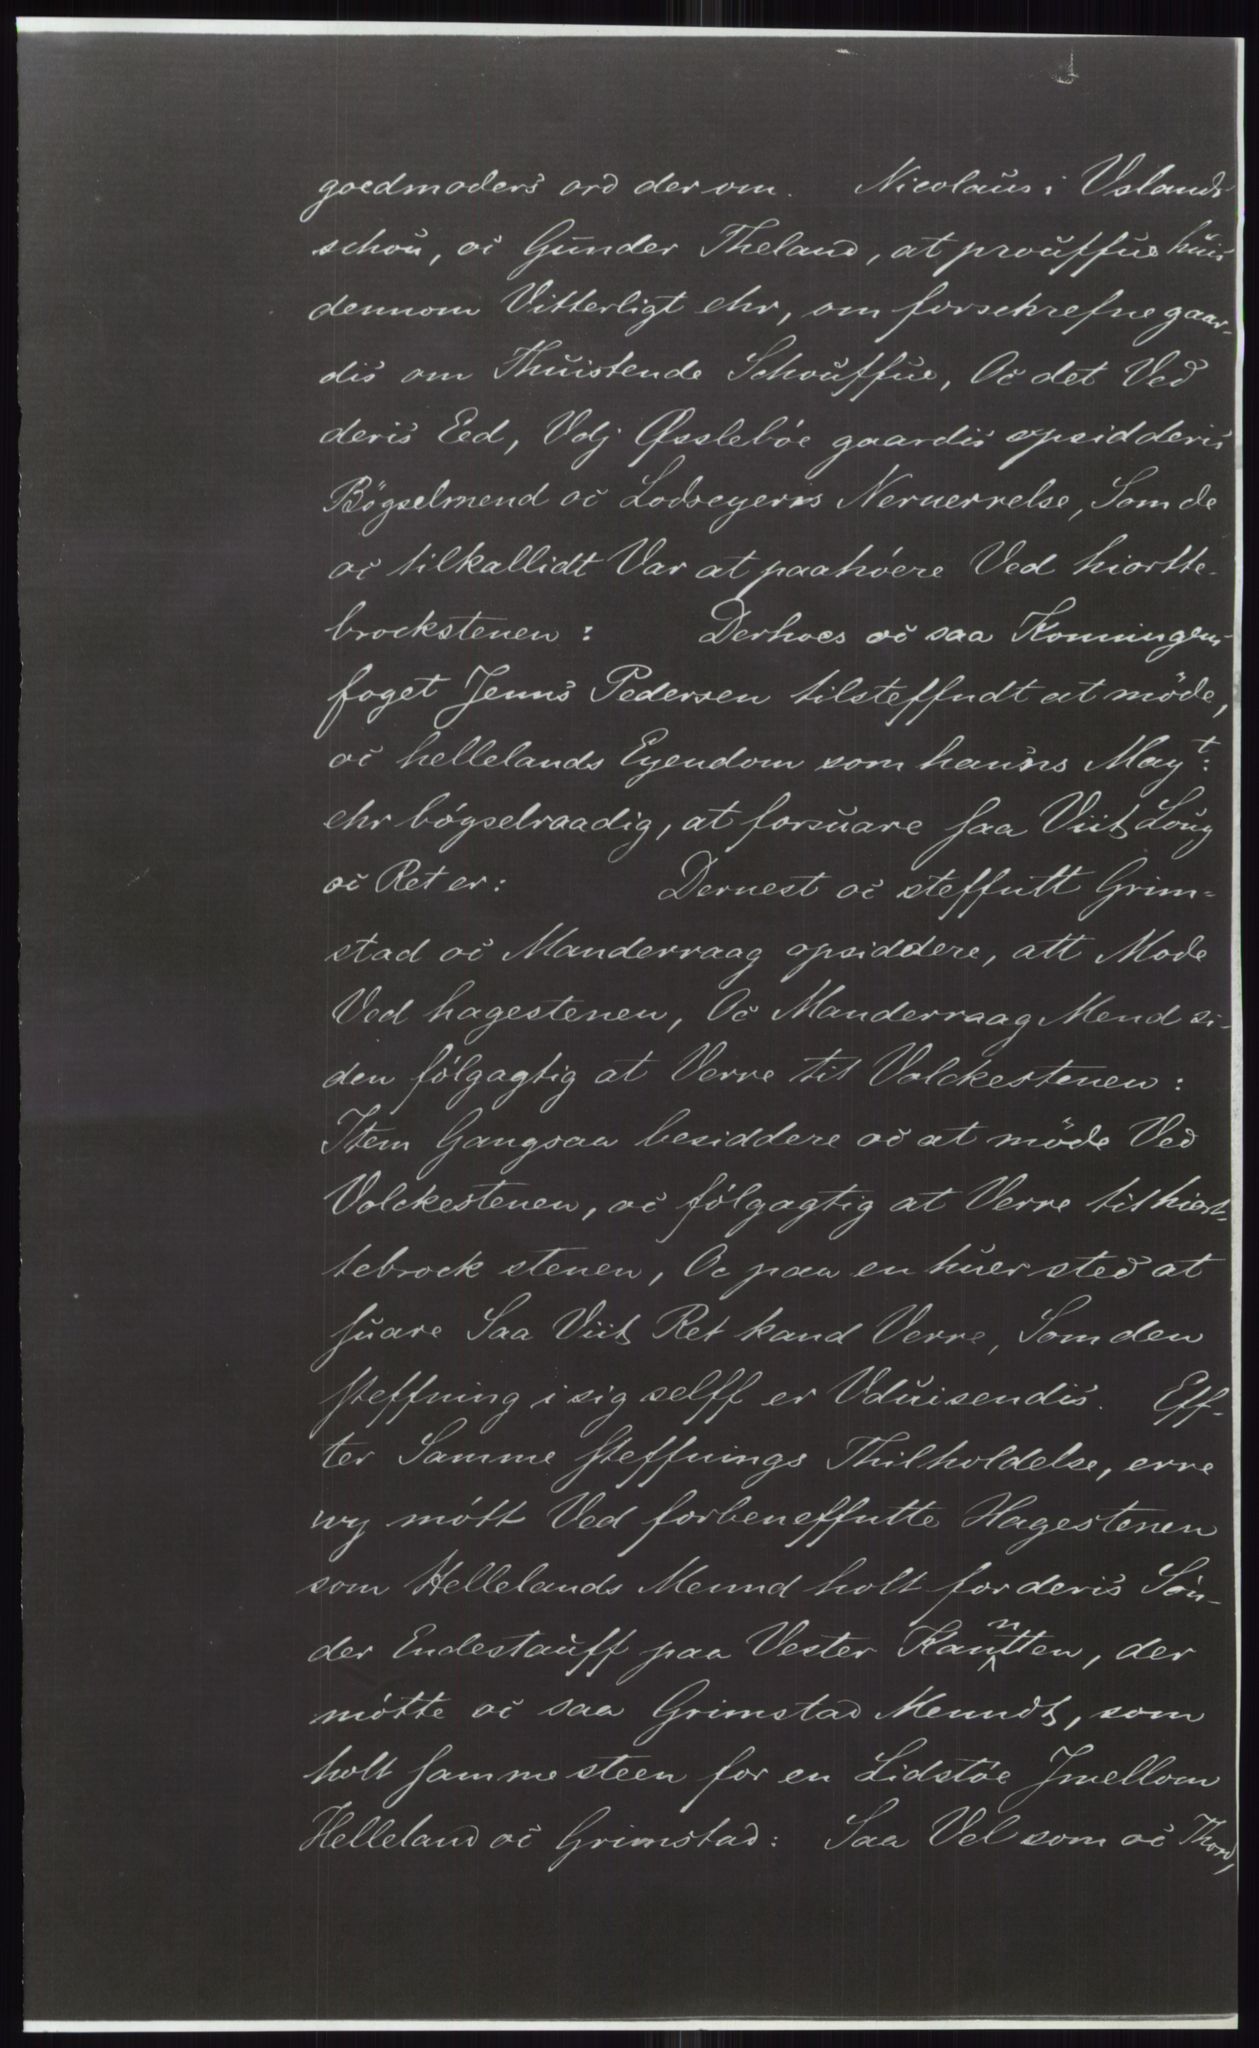 goedmoders ord der om. Nicolaus i Uslands
schou, oc Gunder Theland, at prouffue huis
dennom Vitterligt ehr, om forschrefne gaar-
dis om Thuistende Schouffue, Oc det Ved
deris Eed, Vdj Øsslebøe gaardis opsidderis
Bøgselmend oc Lodseyeris Neruerrelse, Som de
oc tilkallidt Var at paahøere Ved hiortte-
brockstenen: Derhoes oc saa Konningens
foget Jenns Pedersen tilsteffndt at møde,
oc hellelands Eyendom som hanns May<sup>t</sup>:
ehr bøgselraadig, at forsuare saa Viit Loug
oc Ret er: Dernest oc steffntt Grim-
stad oc Manderraag opsiddere, att Mode
Ved hagestenen, Oc Manderraag Mend si-
den følgagtig at Verre til Volckestenen:
Item Gangsaa besiddere oc at møde Ved
Volckestenen, oc følgagtig at Verre til hiort-
tebrock stenen, Oc paa en huer sted at
suare Saa Viit Ret kand Verre, Som den
steffning i sig selff er Vduisendis. Eff-
ter Samme steffnings Thilholdelse, erre
wy møtt Ved forbeneffntte Hagestenen
som Hellelands Mennd holt for deris Søn-
der Endestauff paa Vester Kanntten, der
møtte oc saa Grimstad Menndt, som
holt samme steen for en Lidstøe Jmellom
Helleland oc Grimstad: Saa Vel som oc Thord,